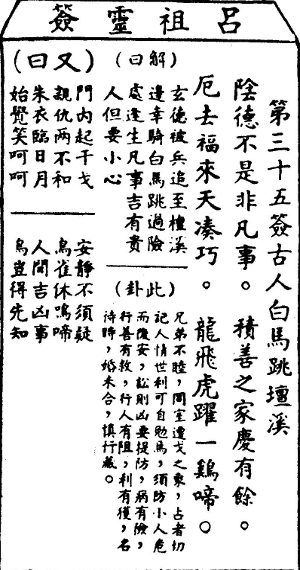 呂祖靈簽
第三十五簽古人白馬跳壇溪
陰德不是非凡事。積善之家慶有餘。
厄去福來天湊巧。龍飛虎躍一鷄啼。
(解曰)
玄德被兵追至檀溪
邊幸騎白馬跳過險
處逢生凡事吉有貴
人但要小心
(此卦)
兄弟不睦，同室遭戈之象，占者切
記人情世利可自勉焉，須防小人危
而復安，訟則凶要提防，病有險，
行善有救，行人有阻，利有獲，名
待時，婚未合，慎行藏。
(又曰)
門內起干戈
親仇兩不和
朱衣臨日月
始覺笑呵呵
安靜不須疑
烏雀休鳴啼
人間吉凶事
鳥豈得先知